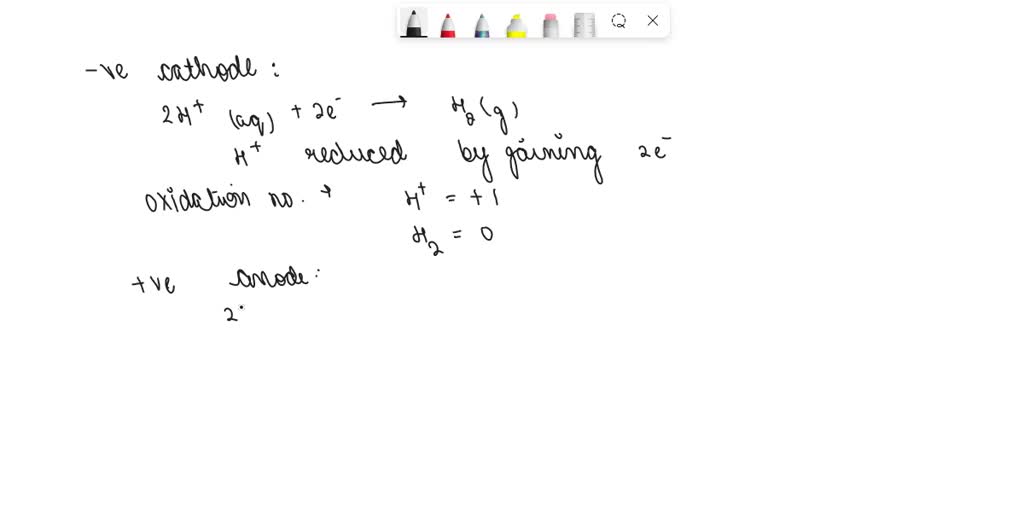 -ve cathode :
2H⁺ (aq) + 2e⁻ → H₂(g)
H⁺ reduced by gaining 2e⁻
oxidation no. → H⁺ = +1
H₂ = 0
+ve anode:
2